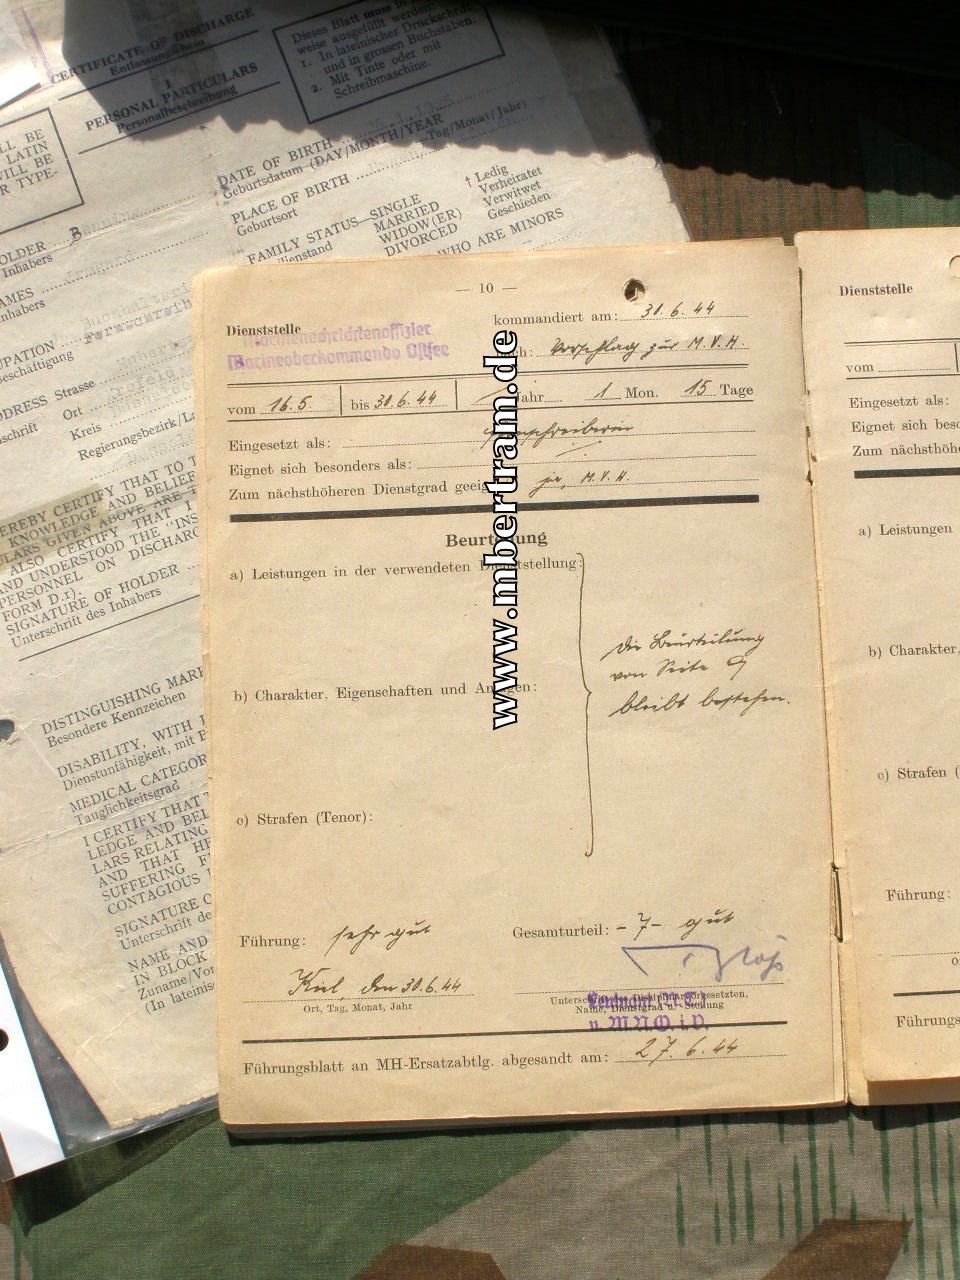 CERTIFICATE OF DISCHARGE
Entlassungsschein
I
PERSONAL PARTICULARS
Personalbeschreibung
Dieses Blatt muss in
weise ausgefüllt werden:
1. In lateinischer Druckschrift
und in grossen Buchstaben.
2. Mit Tinte oder mit
Schreibmaschine.
LL BE
LATIN
WILL BE
R TYPE-
DATE OF BIRTH
Geburtsdatum (DAY/MONTH/YEAR
Tag/Monat/Jahr)
PLACE OF BIRTH
Geburtsort
FAMILY STATUS—SINGLE
MARRIED
WIDOW(ER)
DIVORCED
† Ledig
Verheiratet
Verwitwet
Geschieden
WHO ARE MINORS
ilienstand
OLDER B
Inhabers
AMES
nhabers
UPATION
eschäftigung
DDRESS Strasse
schrift
Ort
Kreis
Regierungsbezirk/La
EREBY CERTIFY THAT TO T
KNOWLEDGE AND BELIEF
LARS GIVEN ABOVE ARE T
ALSO CERTIFY THAT I
AND UNDERSTOOD THE "INS
PERSONNEL ON DISCHAR
FORM D.1).
SIGNATURE OF HOLDER
Unterschrift des Inhabers
DISTINGUISHING MARK
Besondere Kennzeichen
DISABILITY, WITH
Dienstunfähigkeit, mit
MEDICAL CATEGOR
Tauglichkeitsgrad
I CERTIFY THAT
LEDGE AND BEL
LARS RELATING
AND THAT HE
SUFFERING F
CONTAGIOUS
SIGNATURE O
Unterschrift de
NAME AND
IN BLOCK
Zuname/Vor
(In lateinis
— 10 —
Dienststelle
Marinenachrichtenoffizier
Marineoberkommando Ostsee
kommandiert am: 30.6.44
nach: Vorschlag zur M.V.H.
vom 16.5. bis 30.6.44 Jahr 1 Mon. 15 Tage
Eingesetzt als:
Eignet sich besonders als:
Zum nächsthöheren Dienstgrad geeig ja, M.V.H.
Beurteilung
a) Leistungen in der verwendeten Dienststellung:
b) Charakter, Eigenschaften und Anlagen:
c) Strafen (Tenor):
Die Beurteilung
von Seite 9
bleibt bestehen.
Führung: sehr gut
Gesamturteil: - 7 - gut
Kiel, den 30.6.44
Ort, Tag, Monat, Jahr
Unterschrift des Disziplinarvorgesetzten,
Name, Dienstgrad u. Stellung
Leutnant
u. M.N.O. i.V.
Führungsblatt an MH-Ersatzabtlg. abgesandt am: 27.6.44
Dienststelle
vom
Eingesetzt als:
Eignet sich beso
Zum nächsthöhe
a) Leistungen
b) Charakter,
c) Strafen (
Führung:
Führungs
www.mbertram.de